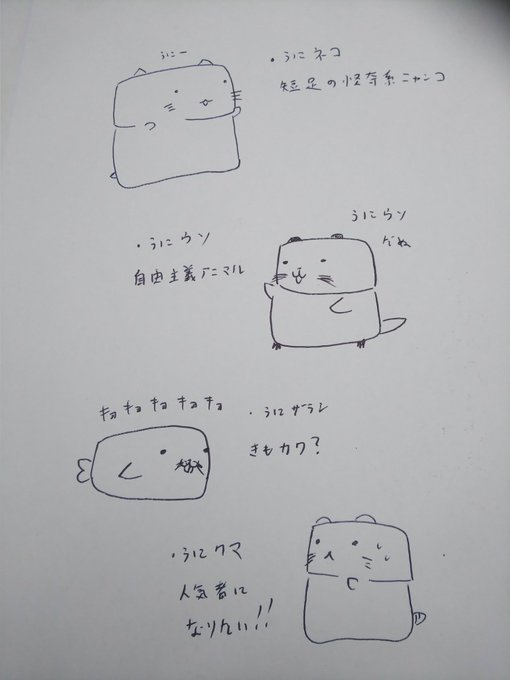 うにー
・うにネコ
短足の怪奇系ニャンコ
うにウソ
だぬ
・うにウソ
自由主義アニマル
キョキョキョキョキョ
・うにザラシ
きもカワ?
・うにクマ
人気者に
なりたい!!